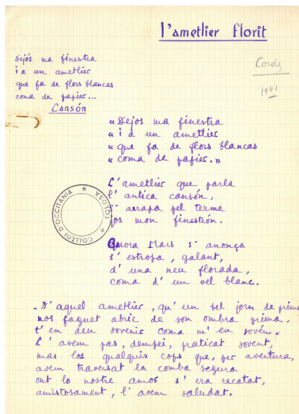 l'ametlier florit
Dejós ma finestra
i a un ametlièr
que fa de flors blancas
coma de papièr...
Cansón
Cordes
1941
« Dejos ma finestra
« i a un ametlier
« que fa de flors blancas
« coma de papier. »
L' ametlier que parla
l' antica cansón,
s' arrapa pel terme
jos mon finestrón.
Quora Mars s' anonça
s' estropa, galant,
d' una neu florada,
coma d' un vel blanc.
COLLÈGI D'OCCITANIA
TOLOSA
D' aquel ametlier, qu' un bel jorn de prima
nos faguet abric de son ombra prima,
t' en deu sovenir coma m' en sovén.
L' avem pas, dempei, praticat sovent,
mas los qualques cops que, per aventura,
avem traversat la comba segura
ont lo nostre amos s' era recatat,
amistosament, l' avem saludat.